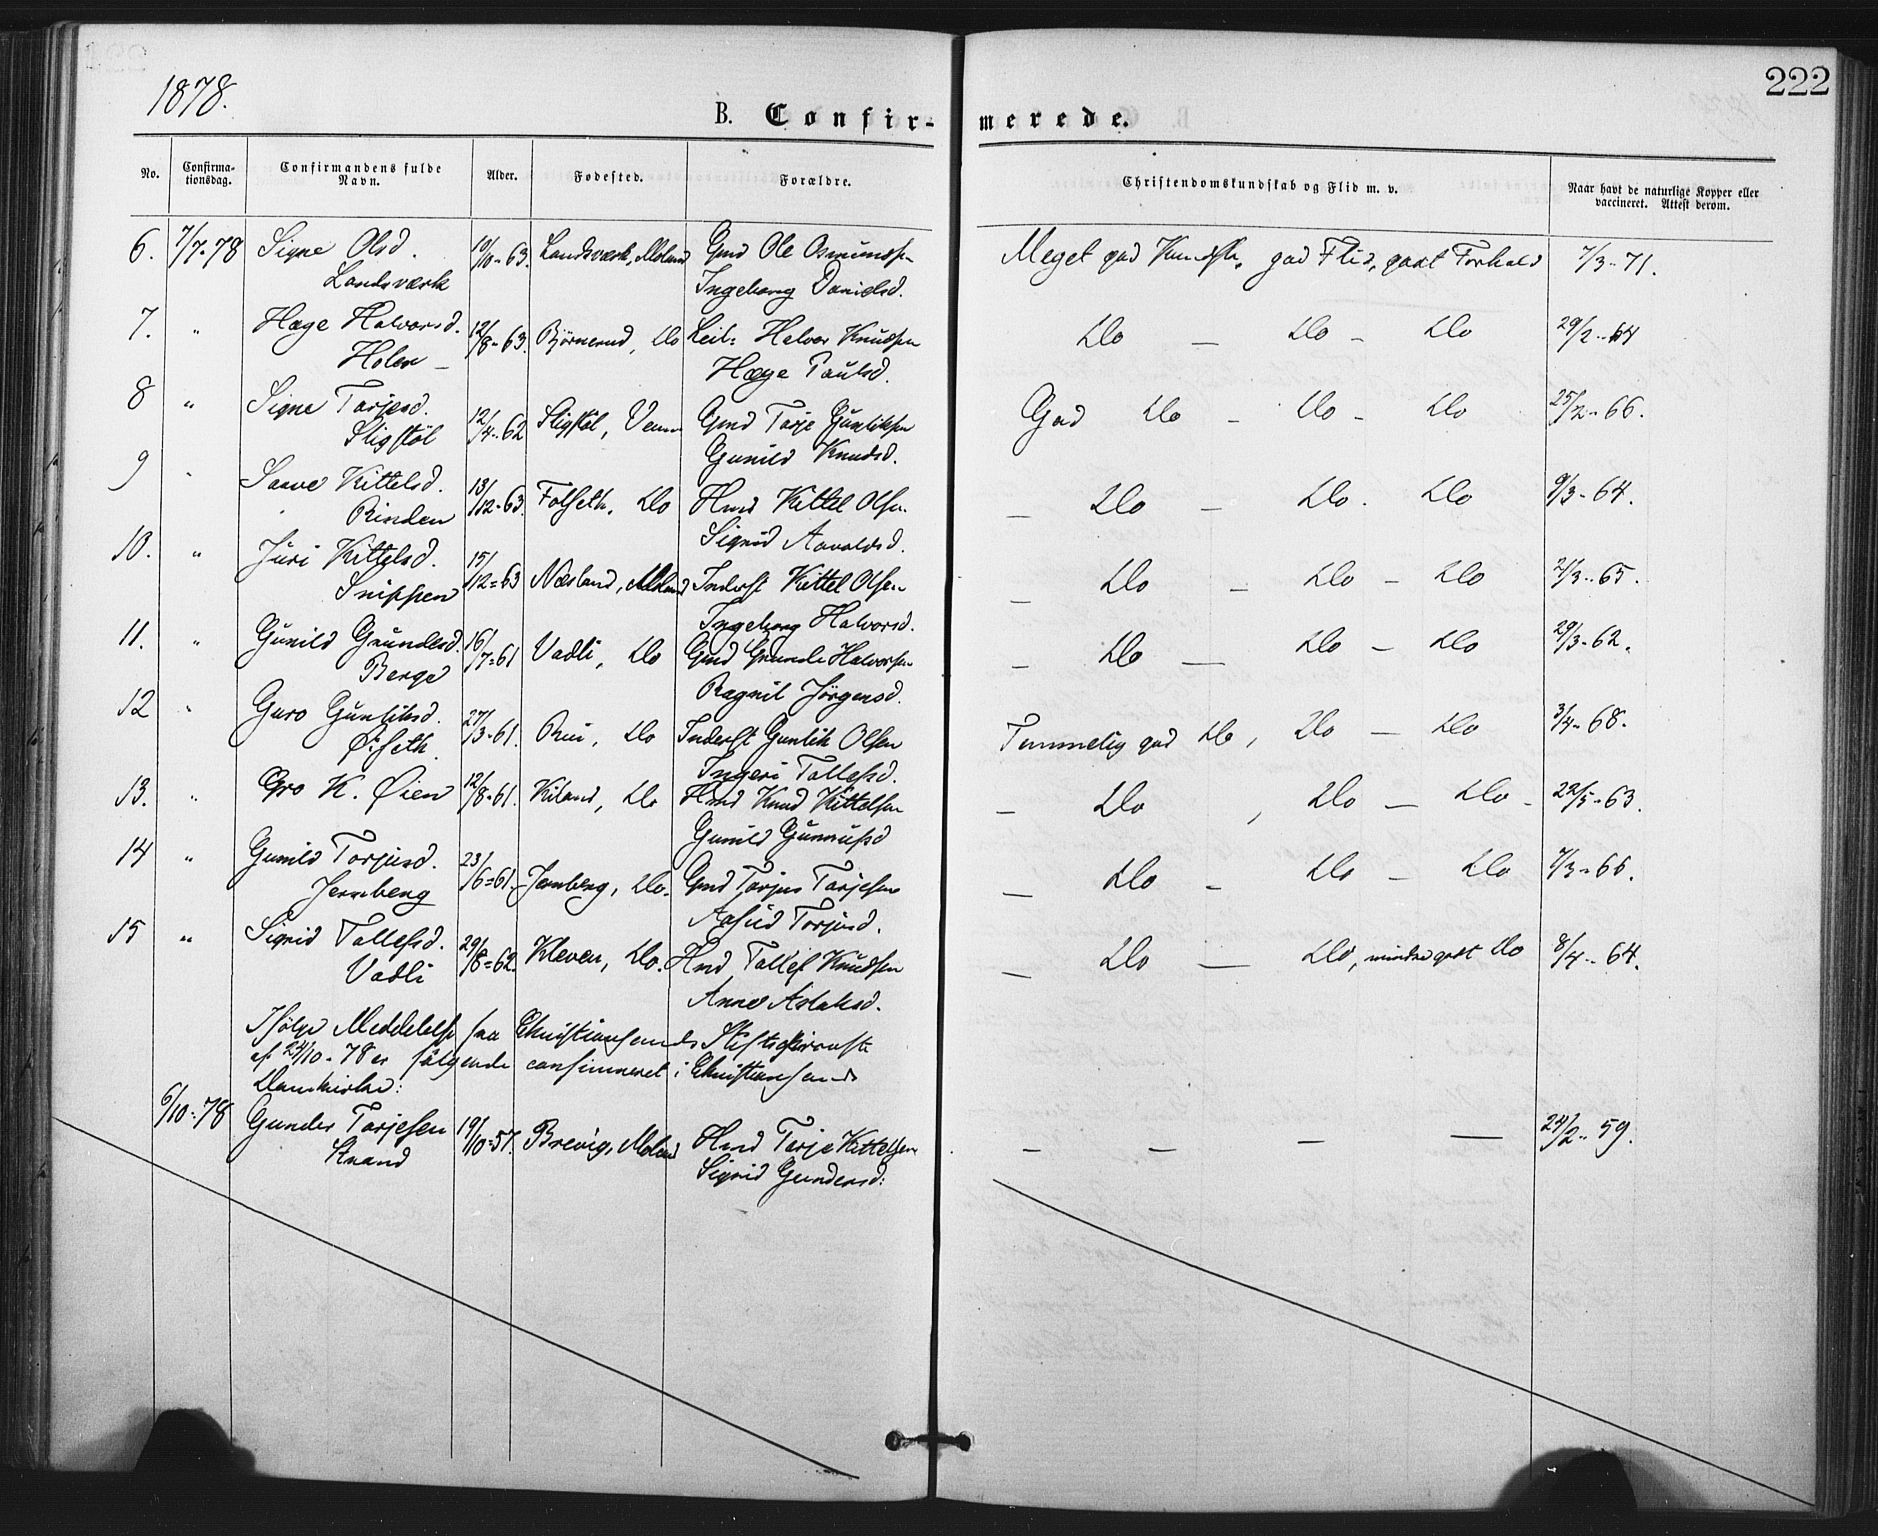 222
1878.
B. Confirmerede.
No. Confirmationsdag. Confirmandens fulde Navn. Alder. Fødested. Forældre. Christendomskundskab og Flid m. v. Naar havt de naturlige Kopper eller vaccineret. Attest derom.
6. 7/7-78 Signe Olsd. 10/10-63. Landsværk, Moland Gmd Ole Osmundsn Meget god Kundsk. god Flid, godt Forhold 7/3-71.
Landsværk Ingeborg Danielsd.
7. " Hæge Halvorsd. 12/8-63. Bjørnerud, Do Leil: Halvor Knudsen Do — Do — Do 29/2-64
Holen — Hæge Paulsd.
8 " Signe Tarjesd. 12/4-62 Sligstøl, Veum Gmd Tarje Gunliksen God Do — Do — Do 25/2-66.
Sligstøl Gunild Knudsd.
9 " Saave Kittelsd. 13/12-63. Folseth, Do Hmd Kittel Olsen. — Do — Do. Do 9/3-64.
Rinden Sigrid Aavoldsd.
10. " Juri Kittelsd. 15/12=63 Næsland, Moland Inderst Kittel Olsen — Do — Do — Do 2/3-65.
Snippen Ingeborg Halvorsd.
11. " Gunild Grundesd. 16/7=61 Vadli, Do Gmd Grunde Halvorsen — Do — Do — Do 29/3-62.
Berge Ragnil Jørgensd.
12 " Guro Gunliksd. 27/3-61. Rui, Do Inderst Gunlik Olsen Temmelig god Do, Do — Do 3/4-68.
Øiseth. Ingeri Tallefsd.
13. " Gro K. Øien 12/8-61. Kiland, Do Hmd Knud Kittelsen — Do , Do — Do — 22/5-63.
Gunild Gunnufsd
14 " Gunild Torjusd. 23/6=61. Jernberg, Do. Gmd Torjus Tarjesen — Do — Do — Do 7/3-66.
Jernberg Aasild Torjusd.
15 " Sigrid Tallefsd. 29/8=62. Kleven, Do. Hmd Tallef Knudsen — Do — Do, mindre godt Do 8/4-64.
Vadli Anne Aslaksd.
Ifølge Meddelelse fra Christiansands Stiftsprovste
af 24/10-78 er følgende confirmeret i Christiansands
Domkirke:
6/10-78 Gunder Tarjesen 19/10=57. Brevig, Moland Hmd Tarje Kittelsen — — — — 24/2-59.
Strand Sigrid Gundersd: